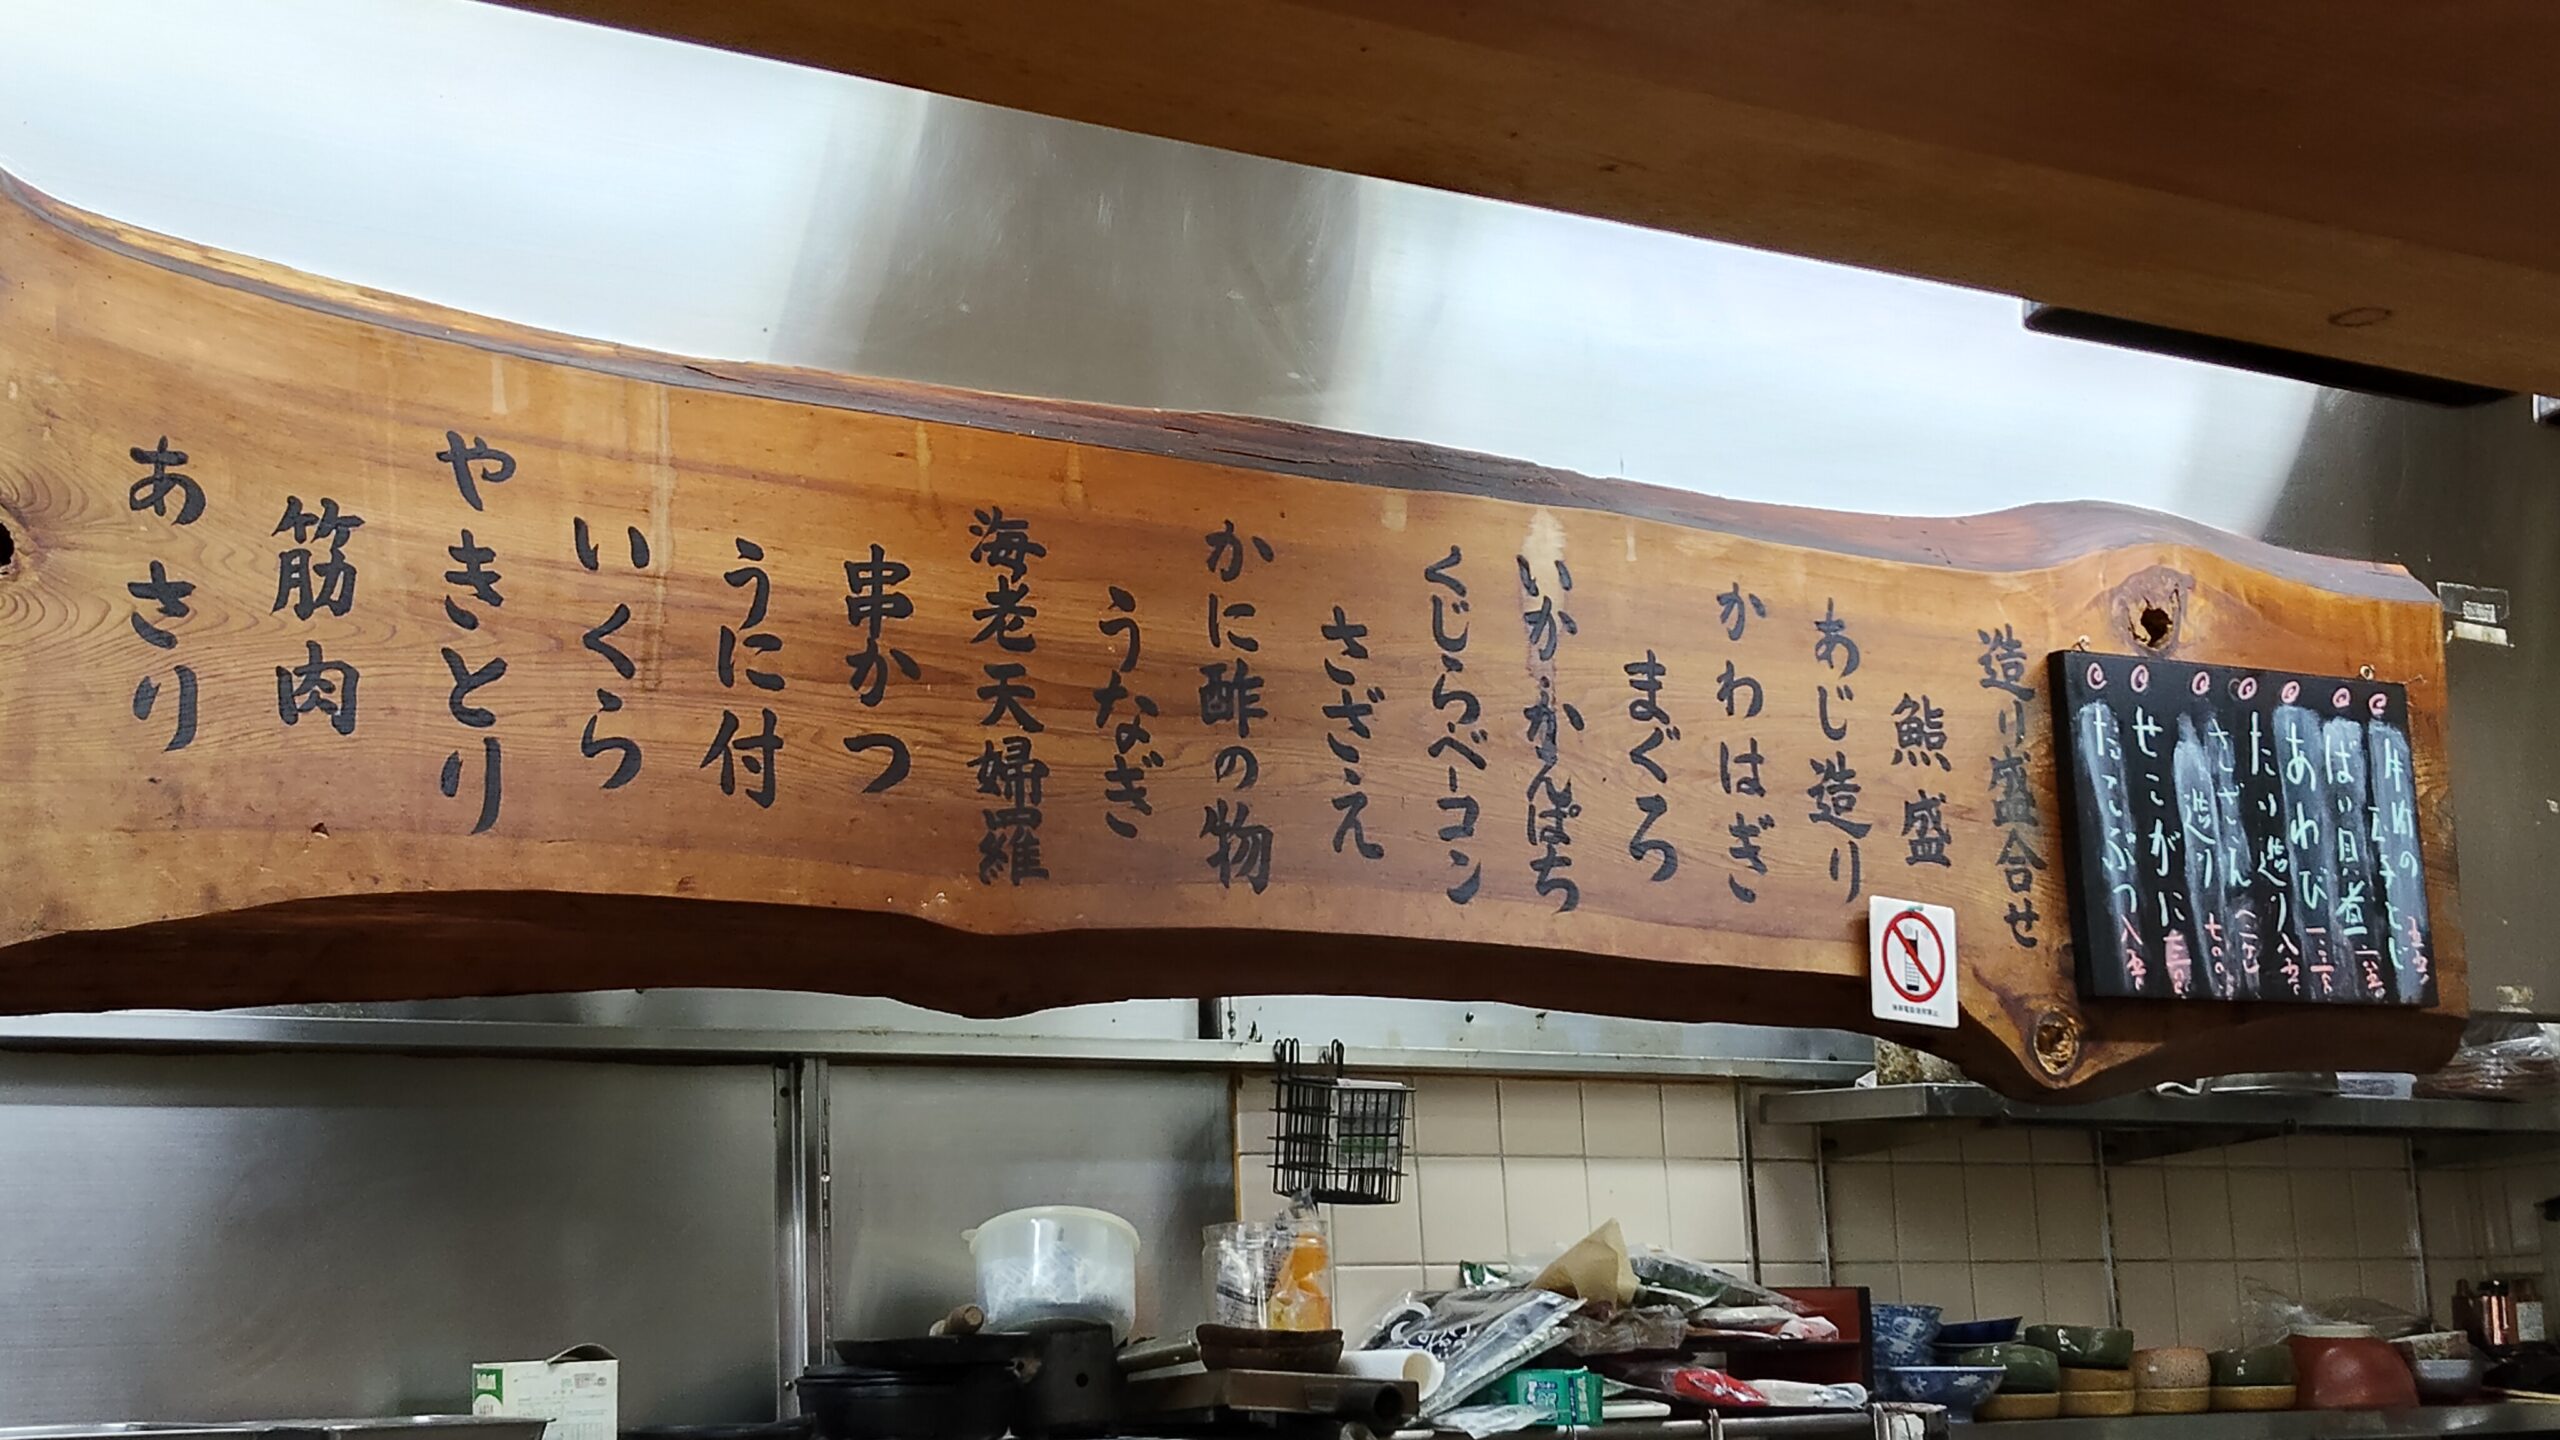 牛肉の玉子とじ
ばい貝煮
あわび
たり造り
さざえ
造り
せこがに
たこぶつ
造り盛合せ
鮑盛
あじ造り
かわはぎ
まぐろ
いか・かんぱち
くじらベーコン
さざえ
かに酢の物
うなぎ
海老天婦羅
串かつ
うに付
いくら
やきとり
筋肉
あさり